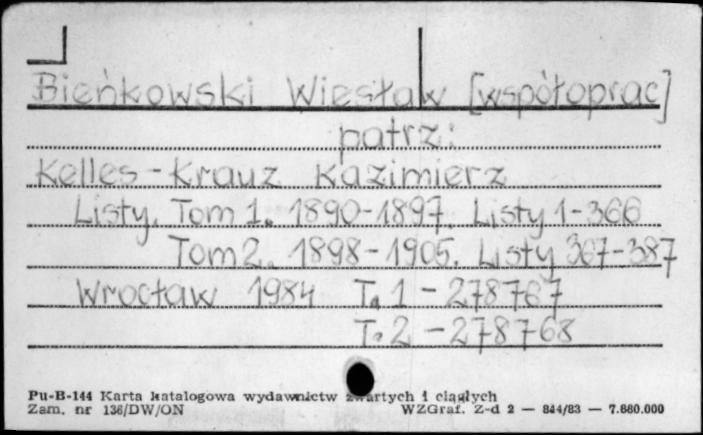 Bieńkowski Wiesław [współoprac]
patrz:
Kelles-Krauz Kazimierz
Listy. Tom 1. 1890-1897. Listy 1-366
Tom 2. 1898-1905. Listy 367-387
Wrocław 1984 T. 1 - 278767
T. 2 - 278768
Pu-B-144 Karta katalogowa wydawnictw zwartych i ciągłych
Zam. nr 136/DW/ON WZGraf. Z-d 2 — 844/83 — 7.880.000